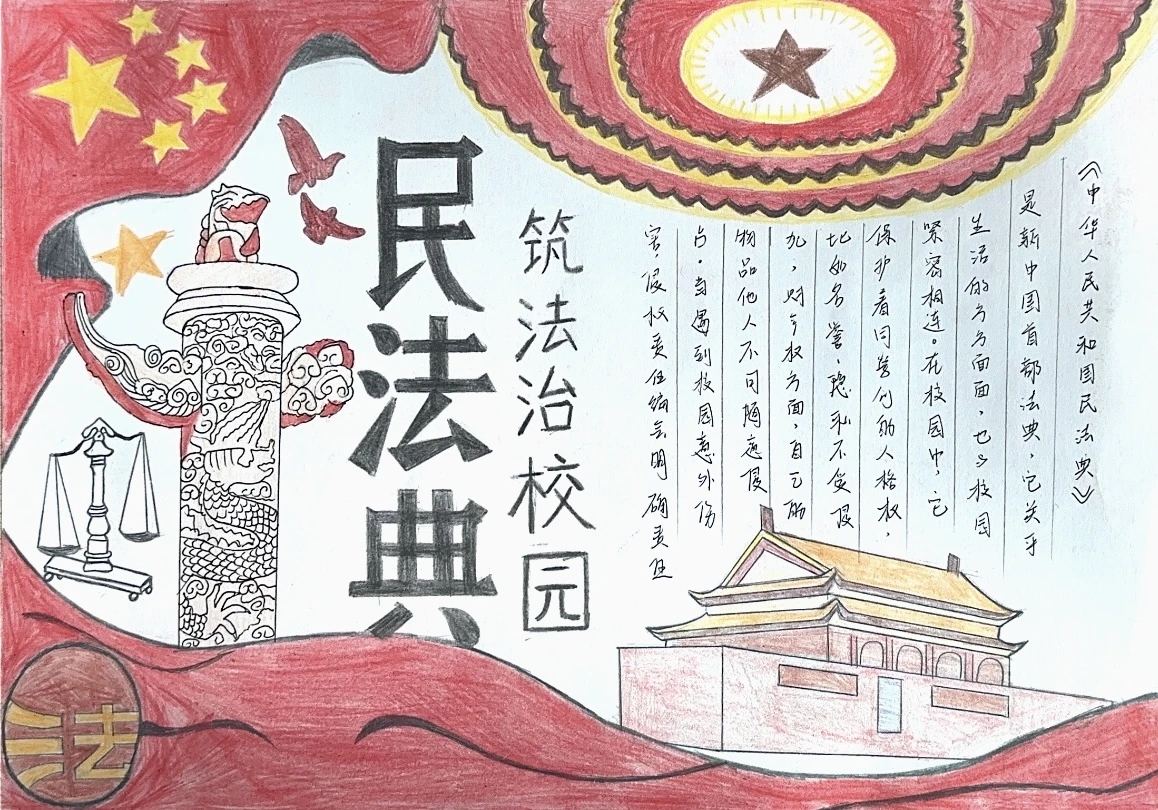 民法典
筑法治校园
《中华人民共和国民法典》
是新中国首部法典,它关乎
生活的方方面面,也与校园
紧密相连。在校园中,它
保护着同学们的人格权,
比如名誉、隐私不受侵
犯,财产权方面,自己的
物品他人不可随意侵
占。当遇到校园意外伤
害,侵权责任编会明确责任
法